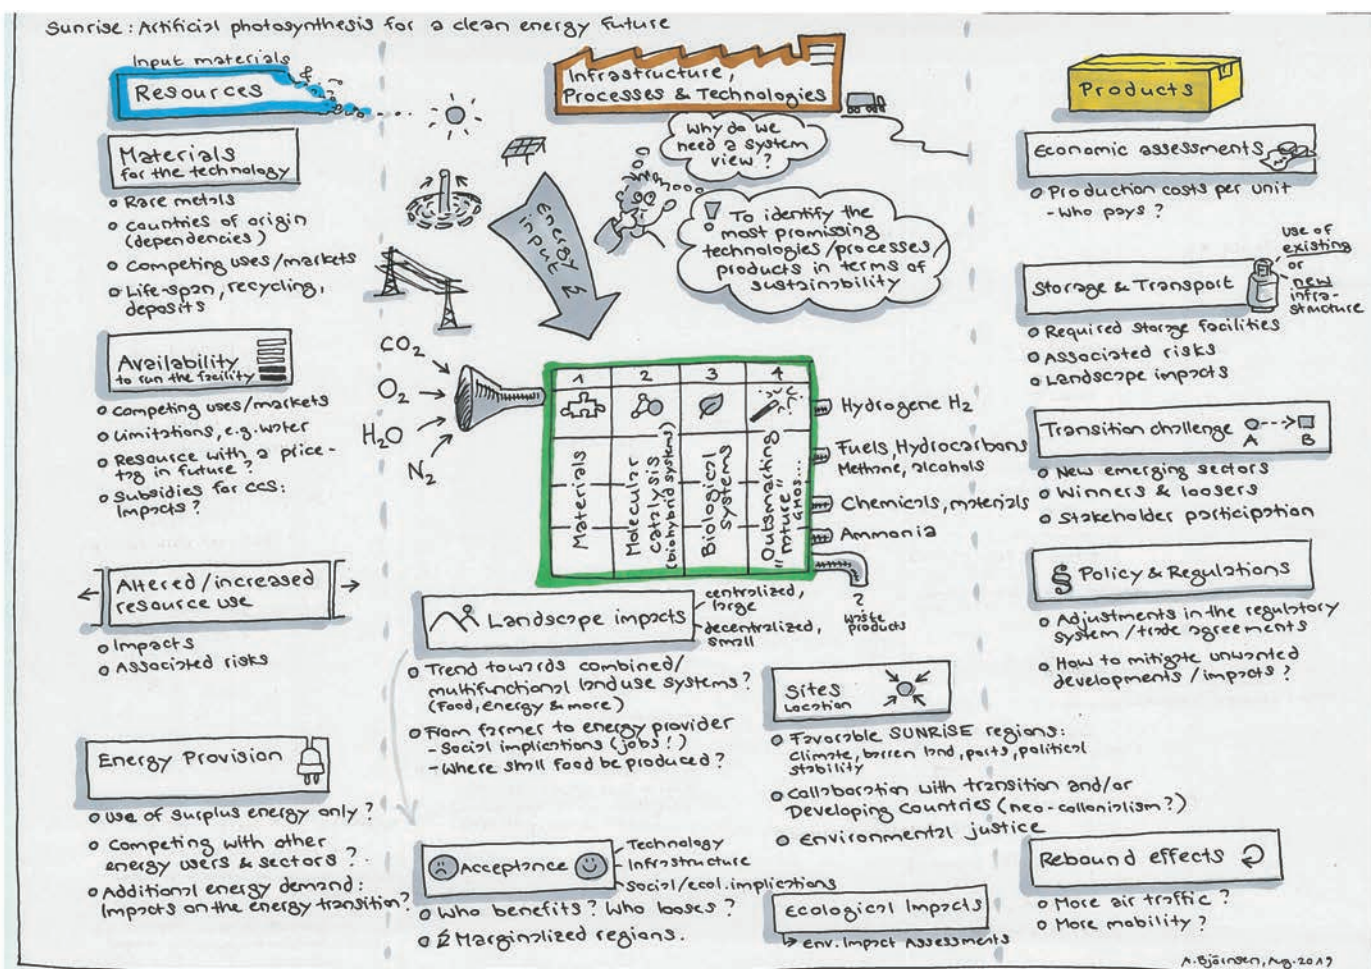 Sunrise: Artificial photosynthesis for a clean energy future
Input materials
&
Resources
Materials
for the technology
Rare metals
Countries of origin
(dependencies)
Competing uses/markets
Life-span, recycling,
deposits
Availability
to run the facility
Competing uses/markets
Limitations, e.g. water
Resource with a price-
tag in future?
Subsidies for CCS:
Impacts?
Altered/increased
resource use
Impacts
Associated risks
Energy Provision
Use of surplus energy only?
Competing with other
energy users & sectors?
Additional energy demand:
Impacts on the energy transition?
Infrastructure,
Processes & Technologies
Why do we
need a system
view?
To identify the
most promissing
technologies/processes/
products in terms of
sustainability
Energy
input
CO2
O2
H2O
N2
1 2 3 4
Materials
Molecular
catalysis
(biohybrid systems)
Biological
systems
Outsmarting
"nature"
Hydrogene H2
Fuels, Hydrocarbons
Methane, alcohols
Chemicals, materials
Ammonia
?
waste
products
Landscape impacts
centralized,
large
decentralized,
small
Trend towards combined/
multifunctional land use systems?
(Food, energy & more)
From farmer to energy provider
- Social implications (jobs!)
- Where shall food be produced?
Acceptance
Technology
Infrastructure
Social/ecol. implications
Who benefits? Who looses?
Marginalized regions.
Sites
Location
Favorable SUNRISE regions:
Climate, barren land, ports, political
stability
Collaboration with transition and/or
Developing Countries (neo-collonialism?)
Environmental justice
Ecological Impacts
Env. Impact Assessments
Products
Economic assessments
Production costs per unit
- Who pays?
Storage & Transport
use of
existing
or
new
infra-
structure
Required storage facilities
Associated risks
Landscape impacts
Transition challenge
A B
New emerging sectors
Winners & loosers
Stakeholder participation
§ Policy & Regulations
Adjustments in the regulatory
system/trade agreements
How to mitigate unwanted
developments/impacts?
Rebound effects
More air traffic?
More mobility?
A. Björnsen, Aug. 2019